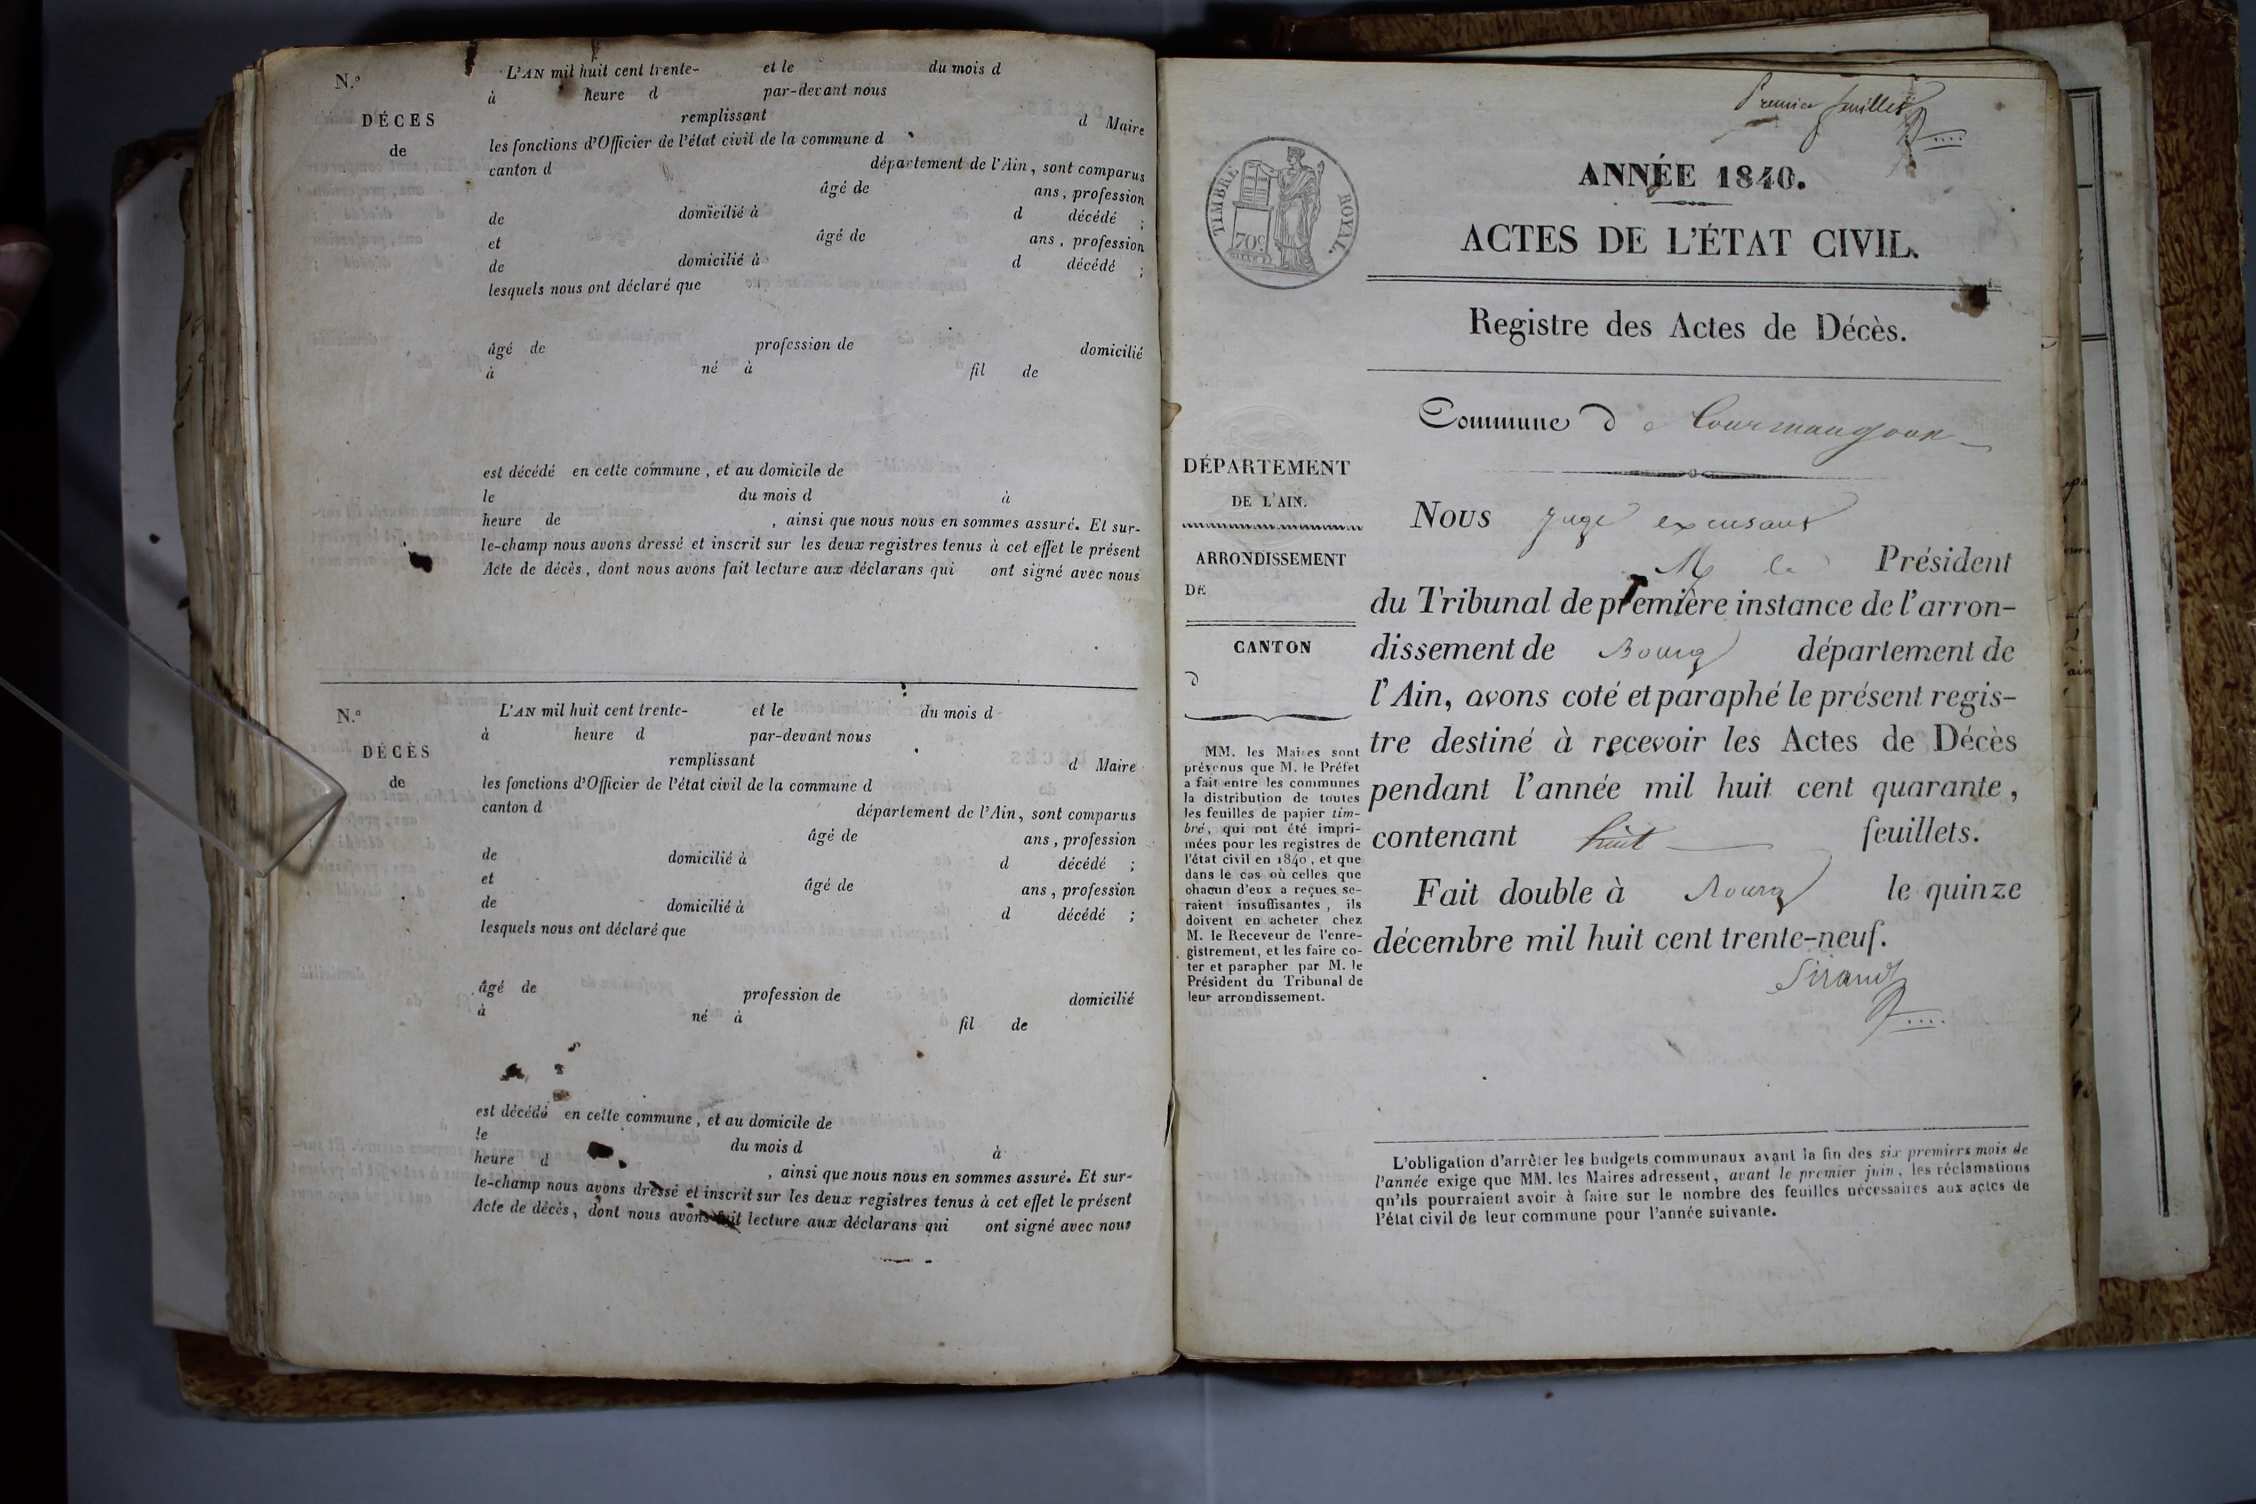 N.º
DÉCES
de
L'AN mil huit cent trente- et le du mois d
à heure d par-devant nous
remplissant d Maire
les fonctions d'Officier de l'état civil de la commune d
canton d département de l'Ain, sont comparus
âgé de ans, profession
de domicilié à d décédé ;
et âgé de ans, profession
de domicilié à d décédé ;
lesquels nous ont déclaré que
âgé de profession de domicilié
à né à fil de
est décédé en cette commune, et au domicile de
le du mois d à
heure de , ainsi que nous nous en sommes assuré. Et sur-
le-champ nous avons dressé et inscrit sur les deux registres tenus à cet effet le présent
Acte de décès, dont nous avons fait lecture aux déclarans qui ont signé avec nous
N.º
DÉCÈS
de
L'AN mil huit cent trente- et le du mois d
à heure d par-devant nous
remplissant d Maire
les fonctions d'Officier de l'état civil de la commune d
canton d département de l'Ain, sont comparus
âgé de ans, profession
de domicilié à d décédé ;
et âgé de ans, profession
de domicilié à d décédé ;
lesquels nous ont déclaré que
âgé de profession de domicilié
à né à fil de
est décédé en cette commune, et au domicile de
le du mois d à
heure d , ainsi que nous nous en sommes assuré. Et sur-
le-champ nous avons dressé et inscrit sur les deux registres tenus à cet effet le présent
Acte de décès, dont nous avons fait lecture aux déclarans qui ont signé avec nous
Premier feuillet
TIMBRE ROYAL.
70c
ANNÉE 1840.
ACTES DE L'ÉTAT CIVIL.
Registre des Actes de Décès.
Commune d e Courmangoux
DÉPARTEMENT
DE L'AIN.
ARRONDISSEMENT
DE
CANTON
D
MM. les Maires sont
prévenus que M. le Préfet
a fait entre les communes
la distribution de toutes
les feuilles de papier tim-
bré, qui ont été impri-
mées pour les registres de
l'état civil en 1840, et que
dans le cas où celles que
chacun d'eux a reçues se-
raient insuffisantes, ils
doivent en acheter chez
M. le Receveur de l'enre-
gistrement, et les faire co-
ter et parapher par M. le
Président du Tribunal de
leur arrondissement.
Nous juge excusant
M le Président
du Tribunal de première instance de l'arron-
dissement de Bourg département de
l'Ain, avons coté et paraphé le présent regis-
tre destiné à recevoir les Actes de Décès
pendant l'année mil huit cent quarante,
contenant huit feuillets.
Fait double à Bourg le quinze
décembre mil huit cent trente-neuf.
Sirand
L'obligation d'arrêter les budgets communaux avant la fin des six premiers mois de
l'année exige que MM. les Maires adressent, avant le premier juin, les réclamations
qu'ils pourraient avoir à faire sur le nombre des feuilles nécessaires aux actes de
l'état civil de leur commune pour l'année suivante.